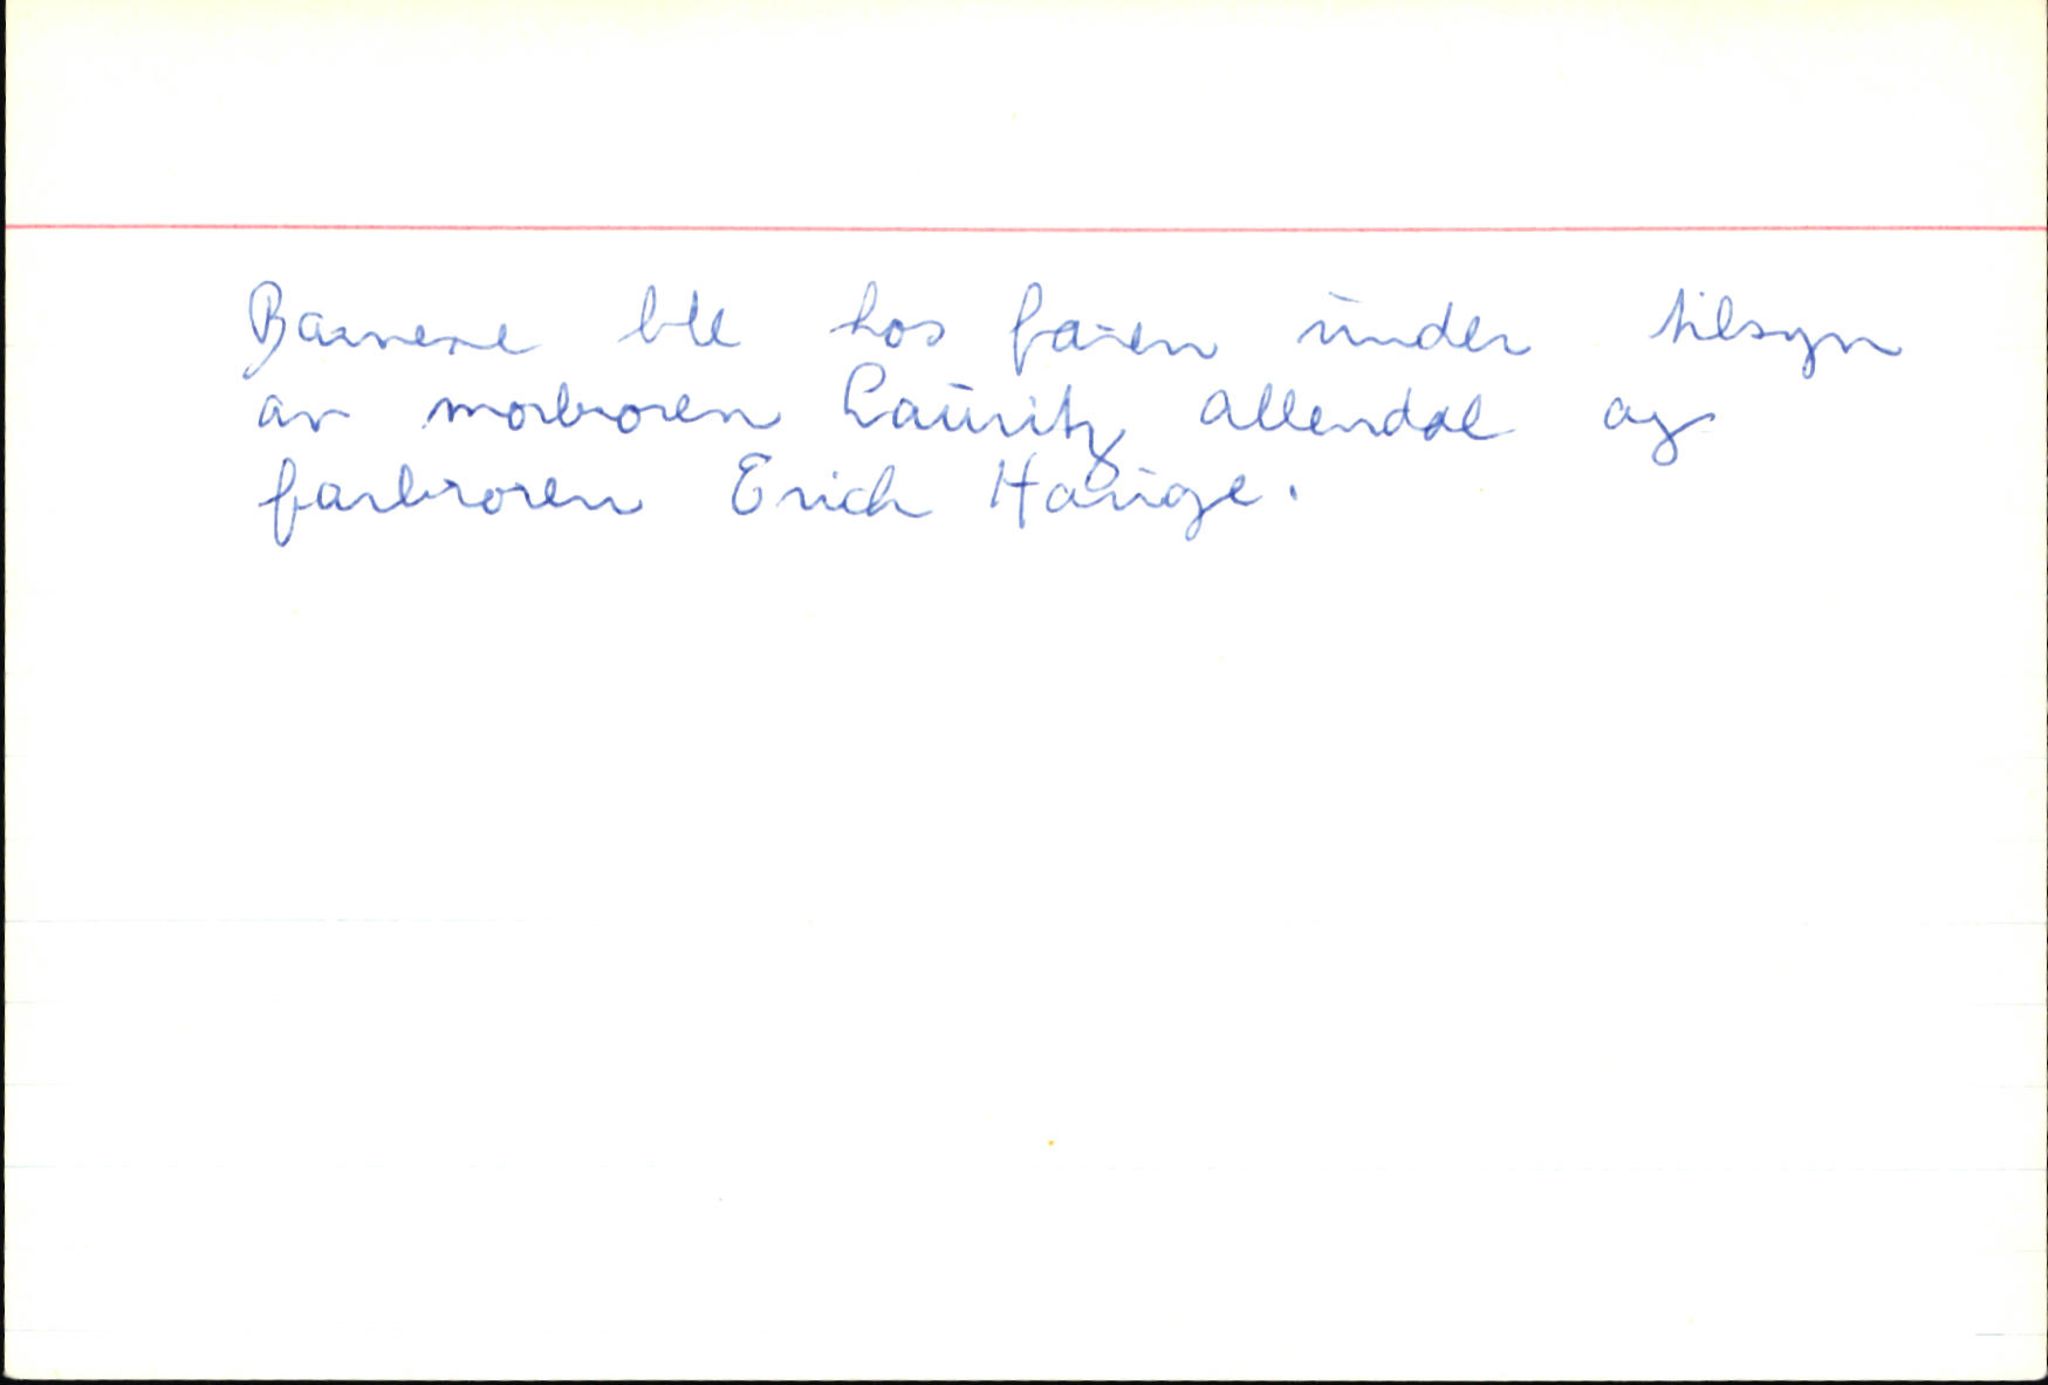 Barnene ble hos faren under tilsyn
av morbroren Lauritz Allendal og
farbroren Erich Hauge.